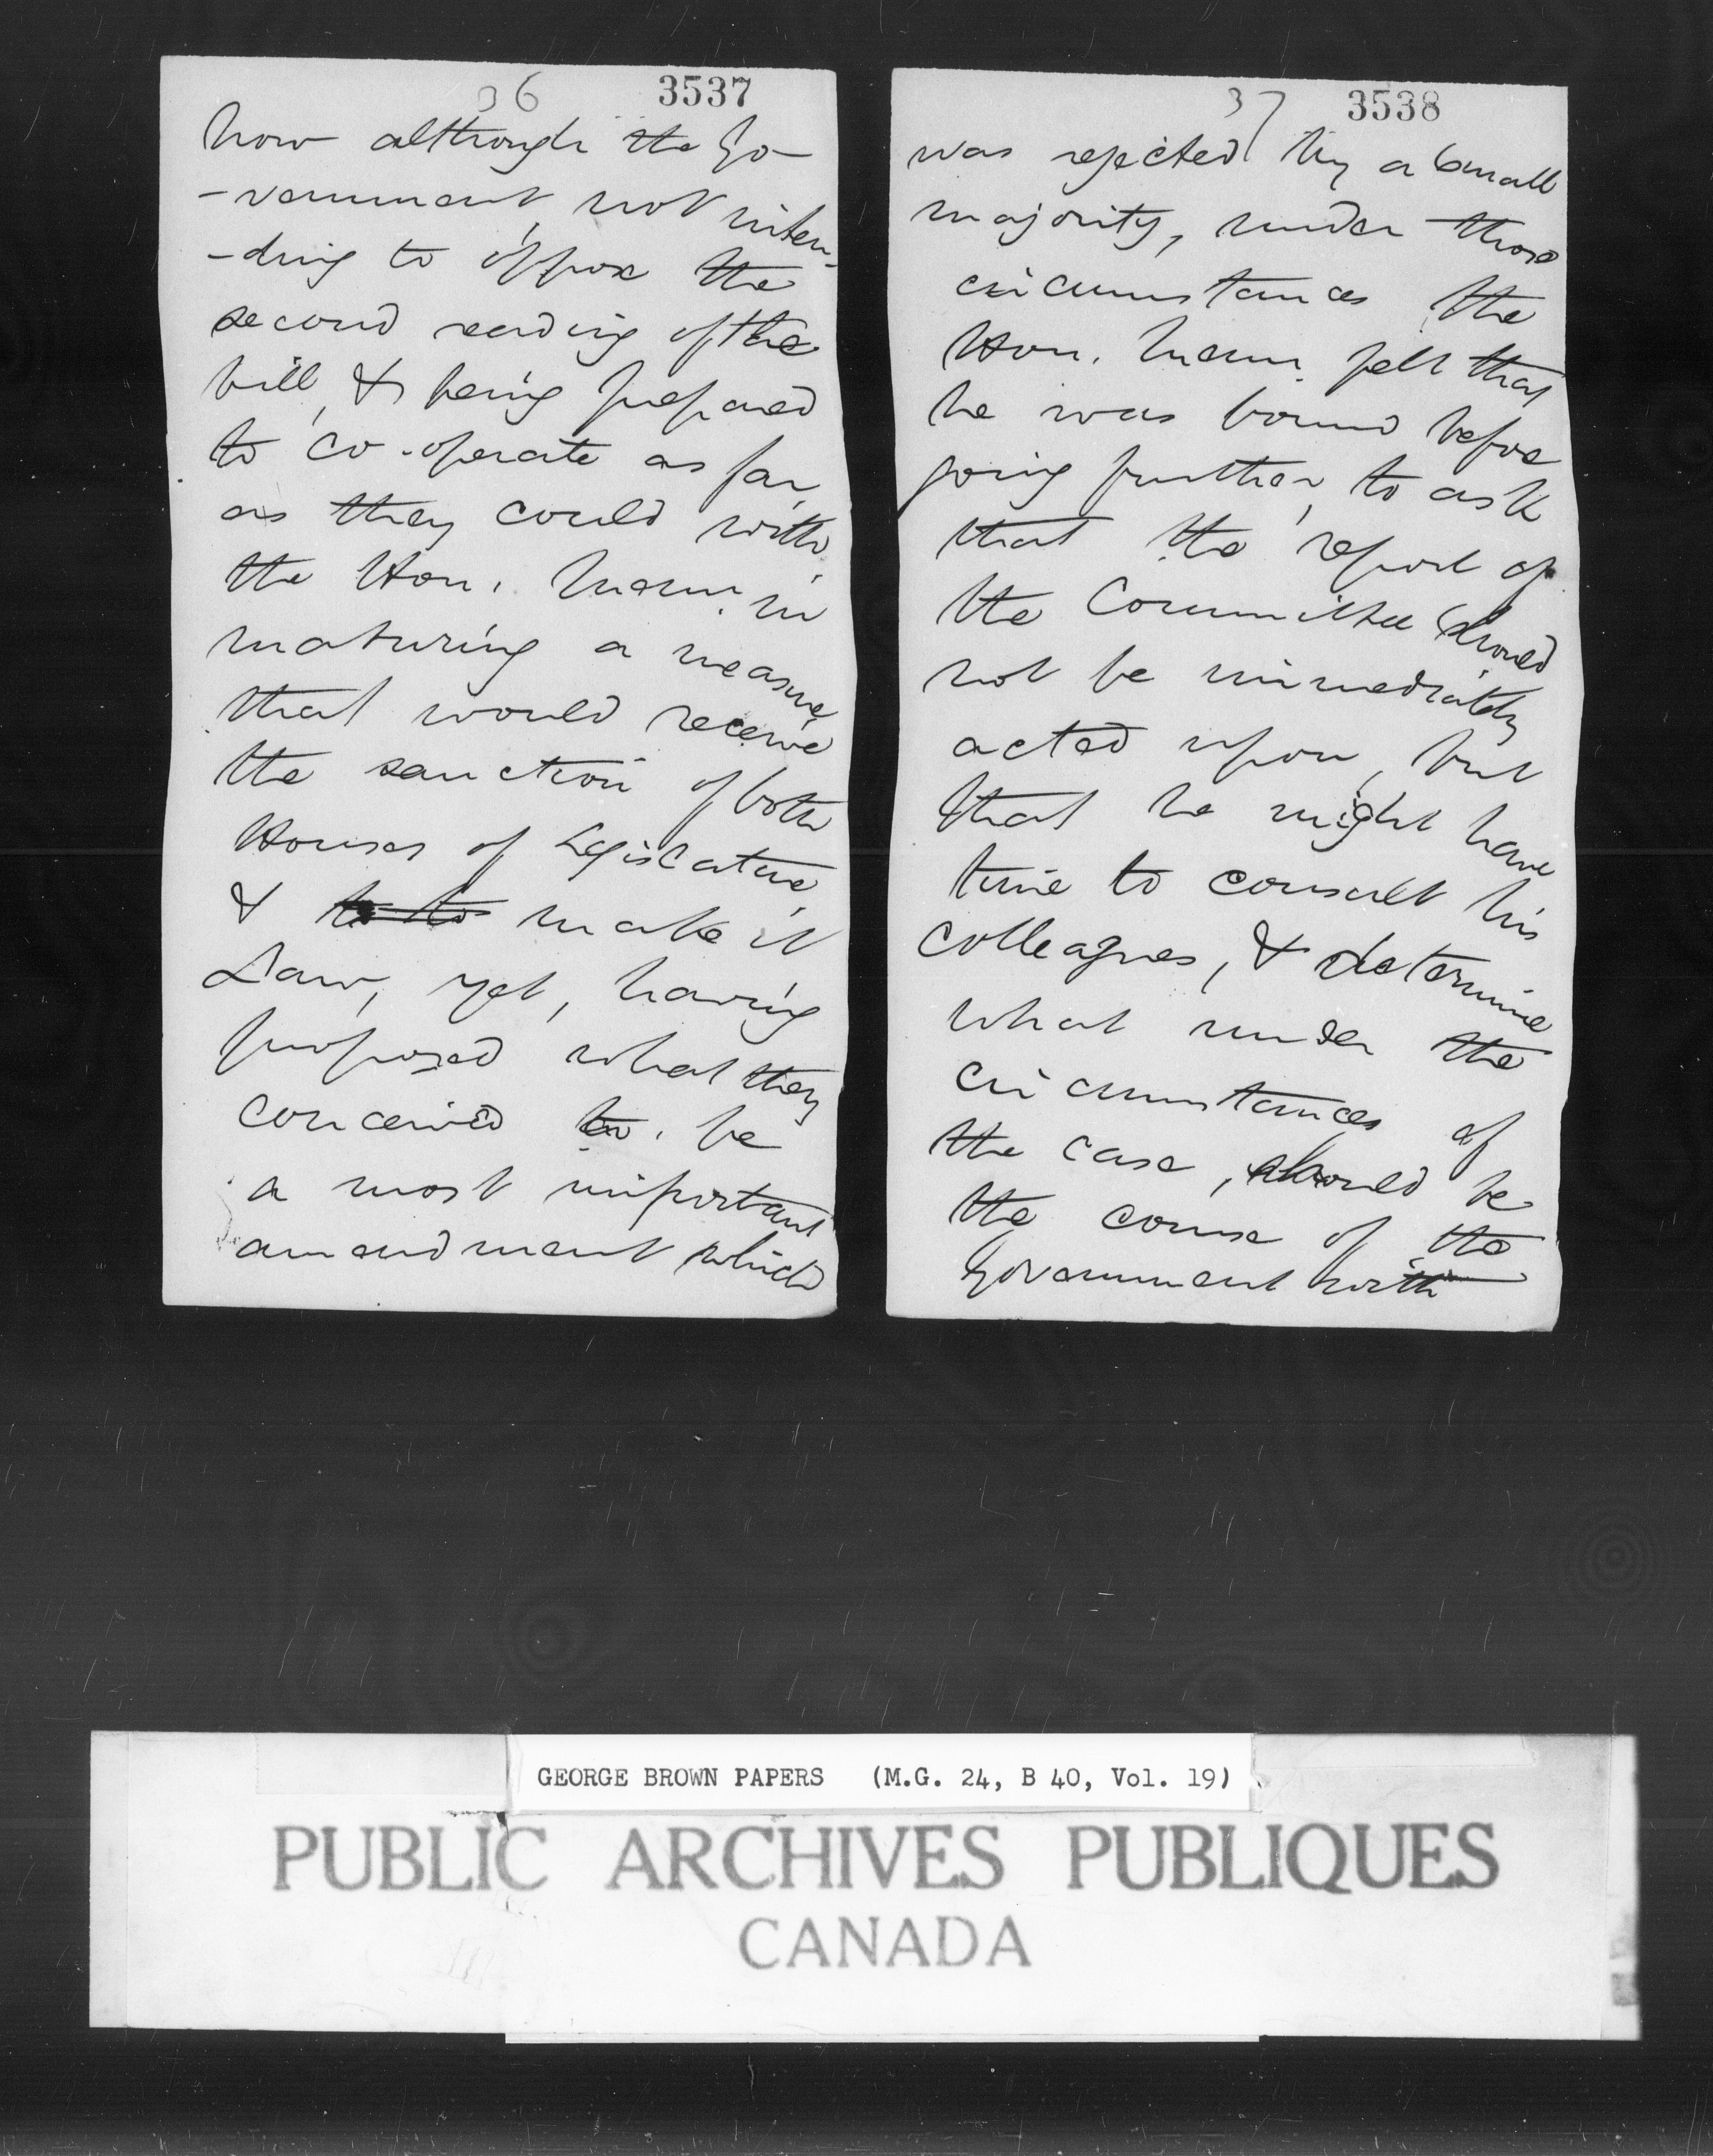 36 3537
now although the Go-
-vernment, not inten-
-ding to oppose the
second reading of the
bill, & being prepared
to co-operate as far
as they could with
the Hon. Mem. in
maturing a measure
that would receive
the sanction of both
Houses of Legislature
& to to make it
Law, yet, having
proposed what they
conceived to be
a most important
amendment which
37 3538
was rejected by a small
majority, under those
circumstances the
Hon. Mem. felt that
he was bound before
going further, to ask
that the report of
the Committee should
not be immediately
acted upon, but
that he might have
time to consult his
colleagues, & determine
what under the
circumstances of
the case, should be
the course of the
Government with
GEORGE BROWN PAPERS (M.G. 24, B 40, Vol. 19)
PUBLIC ARCHIVES PUBLIQUES
CANADA